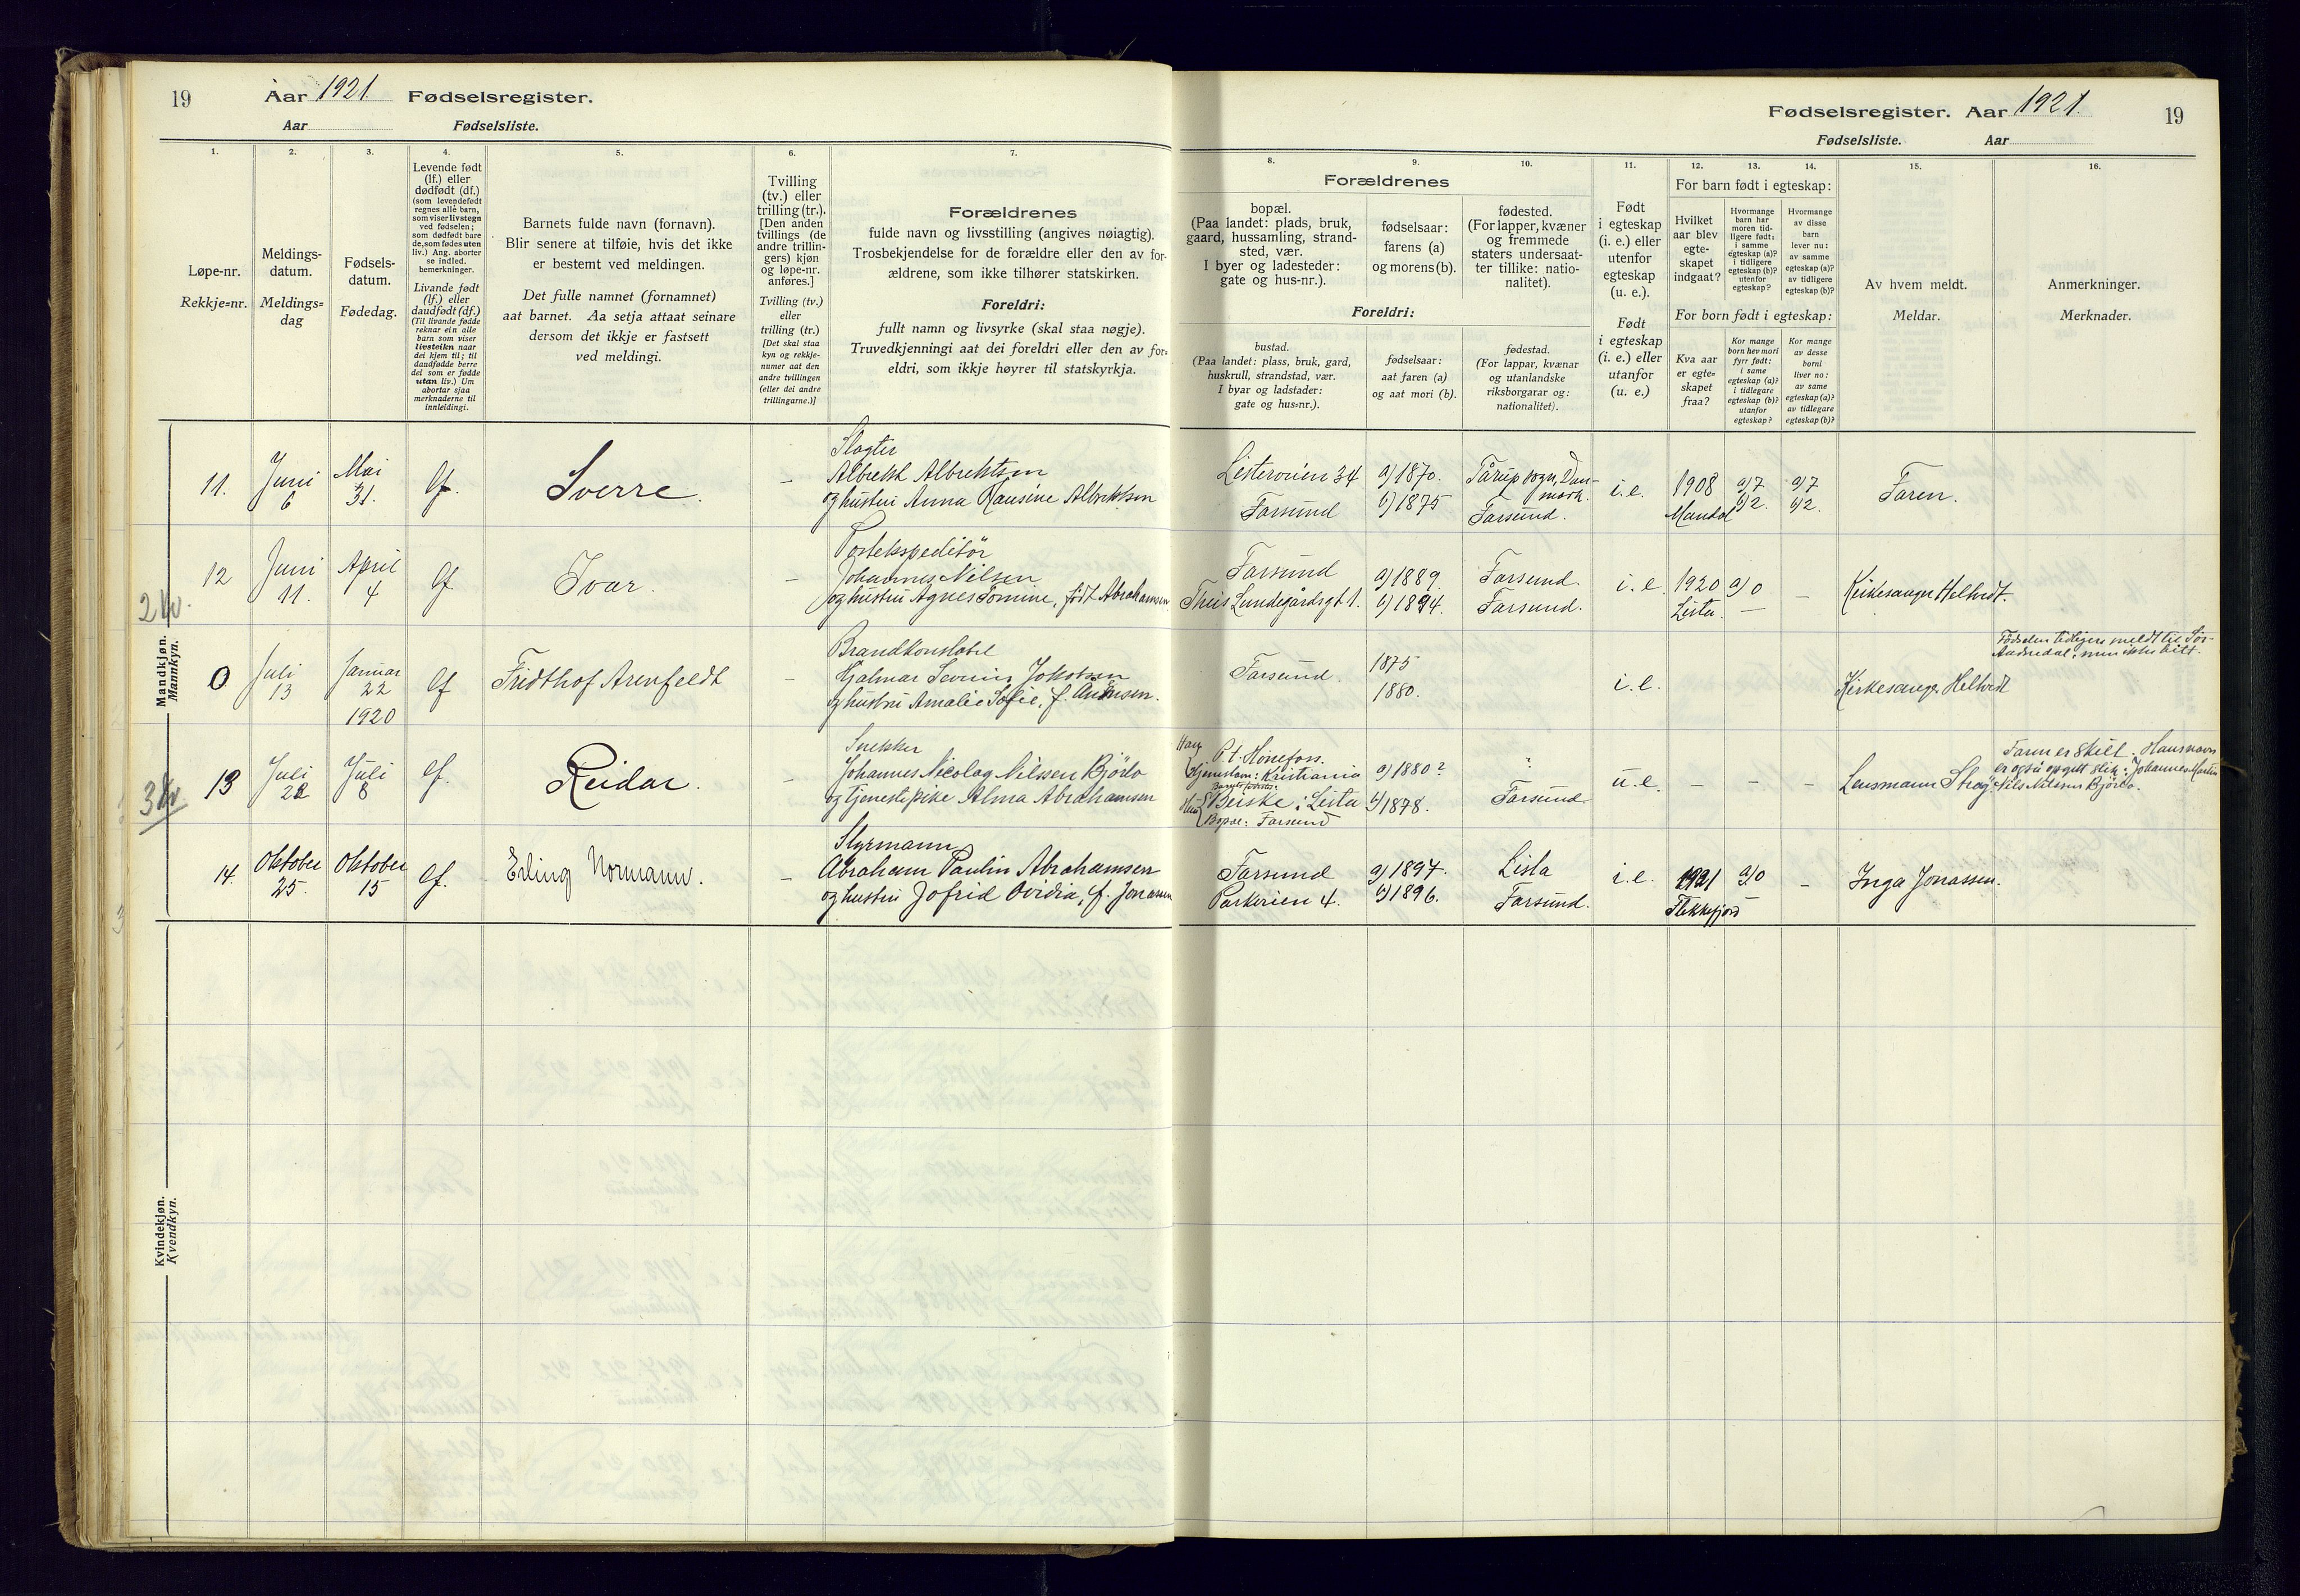 19
Aar 1921. Fødselsregister.
Aar Fødselsliste.
1.
2.
3.
4.
5.
6.
7.
Løpe-nr.
Rekkje=nr.
Meldings-
datum.
Meldings=
dag
Fødsels-
datum.
Fødedag.
Levende født
(lf.) eller
dødfødt (df.)
(som levendefødt
regnes alle barn,
som viser livstegn
ved fødselen;
som dødfødt bare
de, som fødes uten
liv.) Ang. aborter
se indled.
bemerkninger.
Livande født
(lf.) eller
daudfødt (df.)
(Til livande fødde
reknar ein alle
barn som viser
livsteikn naar
dei kjem til; til
daudfødde berre
dei som er fødde
utan liv.) Um
abortar sjaa
merknaderne til
innleidingi.
Barnets fulde navn (fornavn).
Blir senere at tilføie, hvis det ikke
er bestemt ved meldingen.
Det fulle namnet (fornamnet)
aat barnet. Aa setja attaat seinare
dersom det ikkje er fastsett
ved meldingi.
Tvilling
(tv.) eller
trilling (tr.).
[Den anden
tvillings (de
andre trillin-
gers) kjøn
og løpe-nr.
anføres.]
Tvilling (tv.)
eller
trilling (tr.)
[Det skal staa
kyn og rekkje-
numer aat den
andre tvillingen
(eller dei andre
trillingarne.)]
Forældrenes
fulde navn og livsstilling (angives nøiagtig).
Trosbekjendelse for de forældre eller den av for-
ældrene, som ikke tilhører statskirken.
Foreldri:
fullt namn og livsyrke (skal staa nøgje).
Truvedkjenningi aat dei foreldri eller den av for-
eldri, som ikkje høyrer til statskyrkja.
Fødselsregister. Aar 1921. 19
Fødselsliste. Aar
8.
9.
10.
11.
12.
13.
14.
15.
16.
Forældrenes
bopæl.
(Paa landet: plads, bruk,
gaard, hussamling, strand-
sted, vær.
I byer og ladesteder:
gate og hus-nr.).
fødselsaar:
farens (a)
og morens (b).
fødested.
(For lapper, kvæner
og fremmede
staters undersaat-
ter tillike: natio-
nalitet).
Foreldri:
bustad.
(Paa landet: plass, bruk, gard,
huskrull, strandstad, vær.
I byar og ladstader:
gate og hus=nr.).
fødselsaar:
aat faren (a)
og aat mori (b).
fødestad.
(For lappar, kvænar
og utanlandske
riksborgarar og:
nationalitet).
Født
i egteskap
(i. e.) eller
utenfor
egteskap
(u. e.).
Født
i egteskap
(i. e.) eller
utanfor
(u. e.)
For barn født i egteskap:
Hvilket
aar blev
egte-
skapet
indgaat?
Hvormange
barn har
moren tid-
ligere født:
i samme
egteskap (a)?
i tidligere
egteskap (b)?
utenfor
egteskap?
Hvormange
av disse
barn
lever nu:
av samme
egteskap (a)?
av tidligere
egteskap (b)?
For born født i egteskap:
Kva aar
er egte=
skapet
fraa?
Kor mange
born hev mori
fyrr født:
i same
egteskap (a)?
i tidlegare
egteskap (b)?
utanfor
egteskap?
Kor mange
av desse
borni
liver no:
av same
egteskap (a)?
av tidlegare
egteskap (b)?
Av hvem meldt.
Meldar.
Anmerkninger.
Merknader.
Mandkjøn.
Mannkyn.
11. Juni 6 Mai 31. lf. Sverre. -
Slagter
Albrekt Albrektsen
og hustru Anna Albrektsen
Listerveien 34
Farsund
a) 1870.
b) 1875
Tårup sogn, Dan-
mark.
Farsund.
i. e. 1908
Mandal
a) 7
b) 2.
a) 7
b) 2.
Faren.
12 Juni 11. April 4 lf Ivar. -
Postekspeditör
Johannes Nilsen
og hustru Agnes Tomine, født Abrahamsen
Farsund
Lundegårdsgt 1.
a) 1889.
b) 1894.
Farsund.
Farsund.
i. e. 1920
Lista.
a) 0
-
-
Kirkesanger Helvedt.
0 Juli 13 Januar 22 1920 lf Fridthof Arenfeldt -
Brandkonstabel
Hjalmar Severin Jakobsen
og hustru Amalie Sofie, f.
Farsund.
1875
1880.
i. e.
Kirkesanger Helvedt
Fødselen tidligere meldt til Sør-
Audnedal, men ikke hitt.
13 Juli 22 Juli 8 lf. Reidar. -
Snekker
Johannes Nicolay Nilssen Björlo
og tjenestepike Alma Abrahamsen
P. t. Hönefoss.
Hjemstavn: Kristiania
Barnets fødested:
Beiske i Lista
Bopæl: Farsund
a) 1880?
b) 1878.
?
Farsund.
u. e. - - -
Lensmann Strøg.
Faren er skilt. Hans navn
er også opgitt slik: Johannes Martin
Nils Nilssen Björlo.
14. Oktober 25. Oktober 15 lf. Erling Normann. -
Styrmann
Abraham Paulin Abrahamsen
og hustru Jofrid Ovidia, f. Jonassen
Farsund
Parkveien 4.
a) 1897.
b) 1896.
Lista
Farsund.
i. e. 1921
Flekkefjord
a) 0
-
Inga Jonassen.
Kvindekjøn.
Kvendkyn.